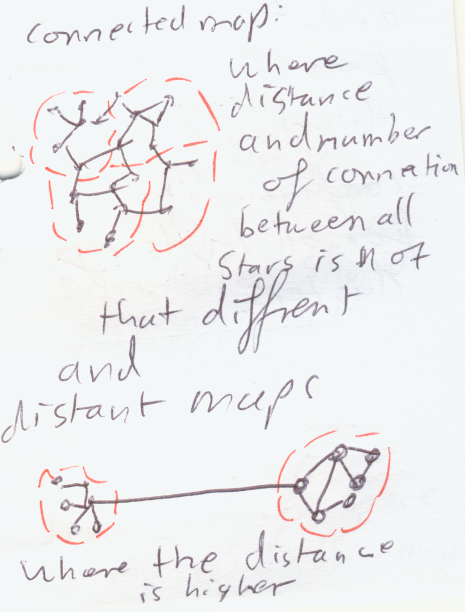 connected map:
where
distance
and number
of connetion
between all
stars is not
that diffrent
and
distant maps
where the distance
is higher